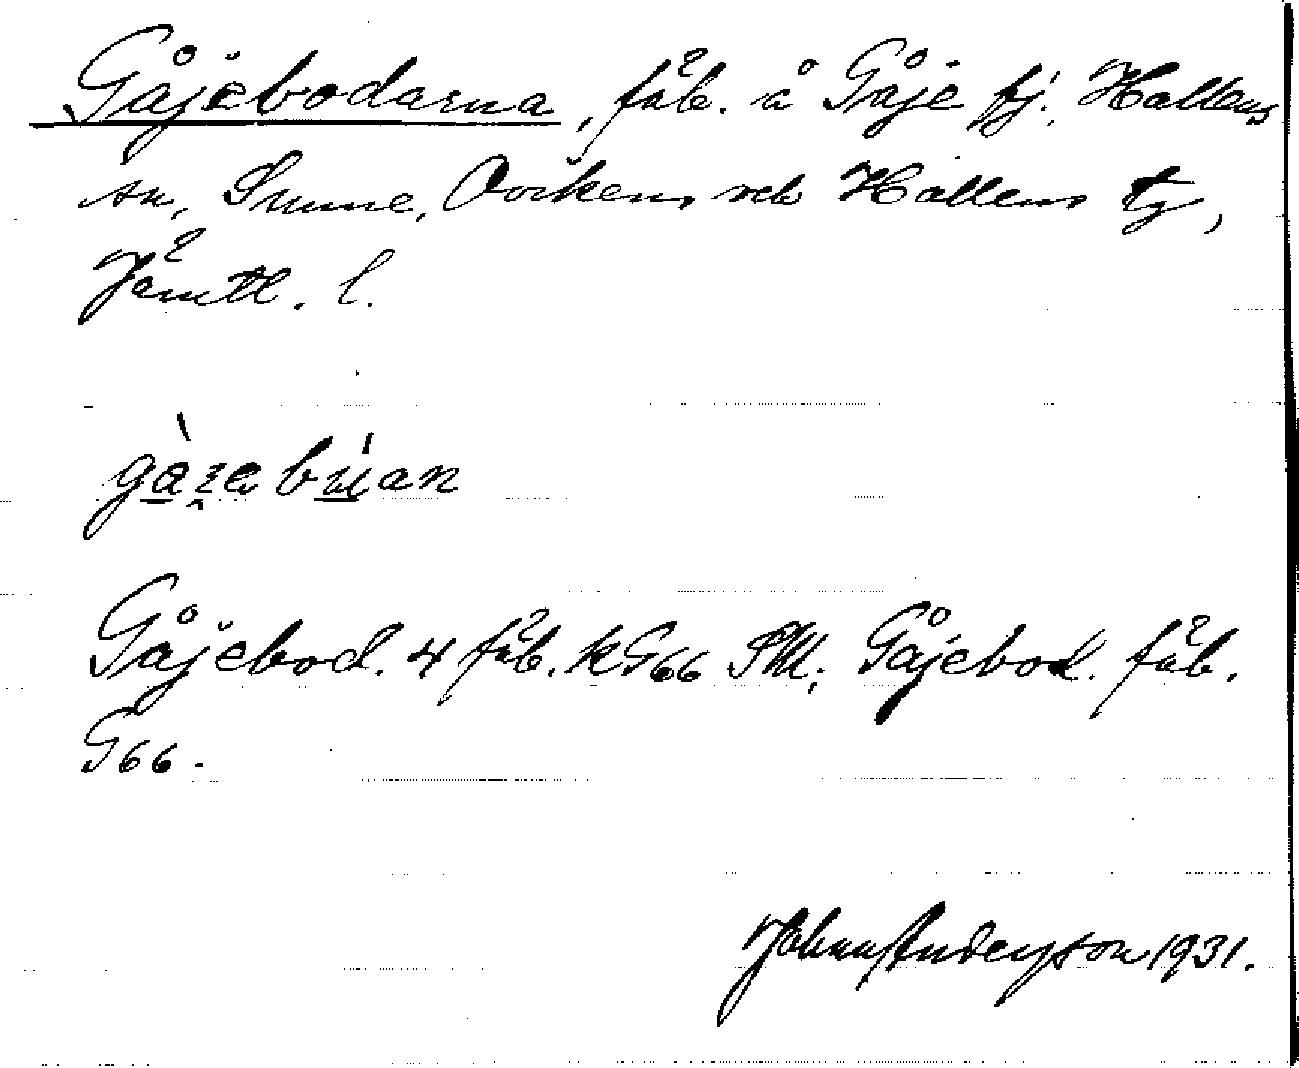 Gåjebodarna, fäb. å Gåje fj. Hallens
sn, Sunne, Ovikens och Hallens tg,
Jämtl. l.
Gåjebod. 4 fäb. KG66 SM; Gåjebod. fäb.
G66.
Johan Anderson 1931.